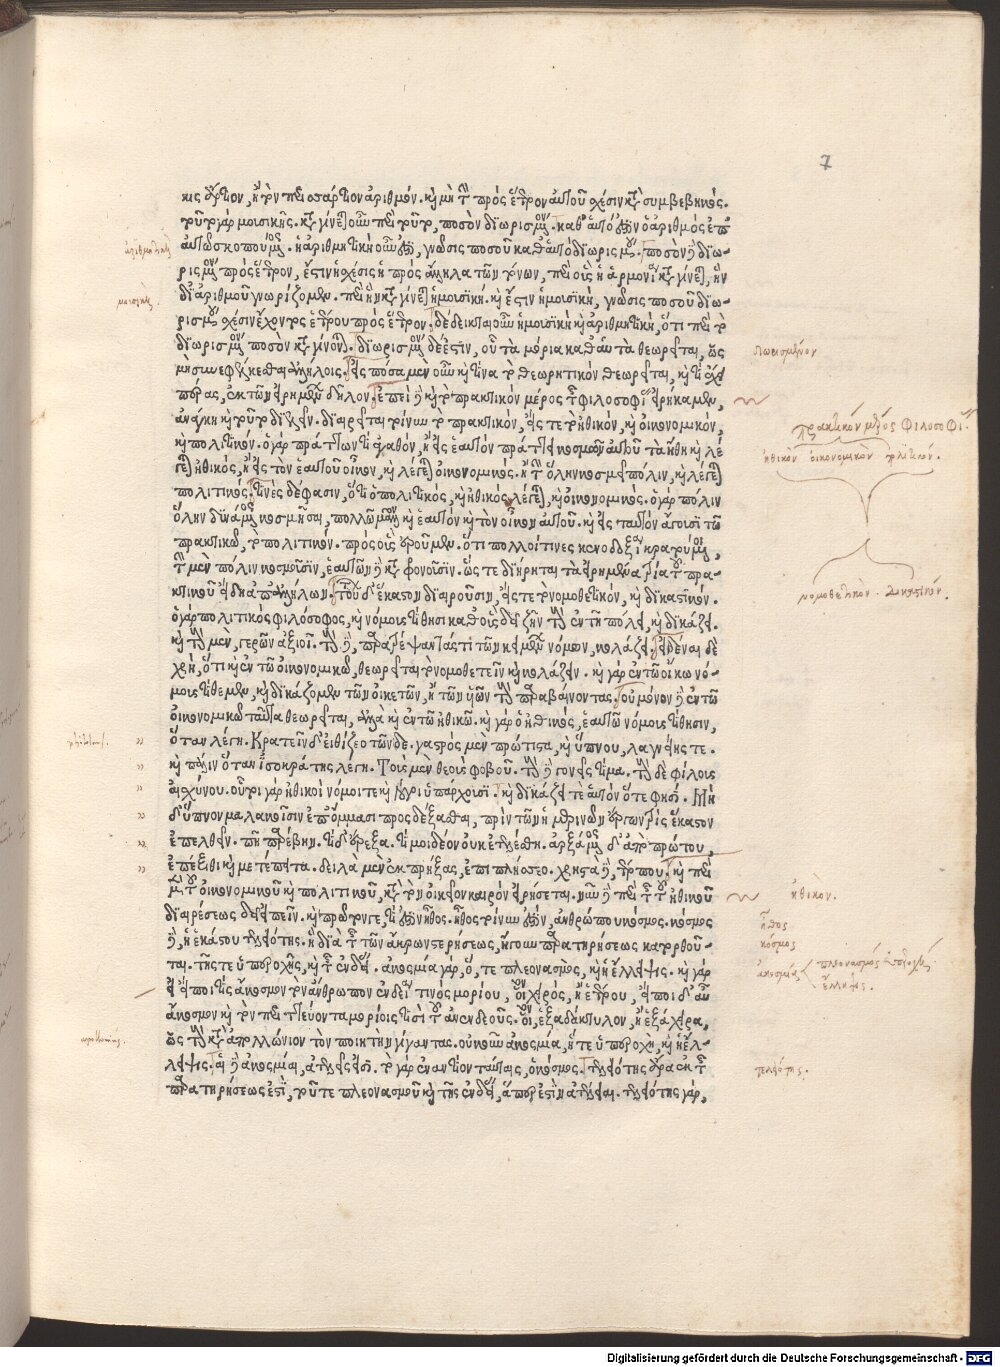 7
κις ἄρτιον, ἢ τὸν περισσάρτιον ἀριθμόν. καὶ μὴ τὴν πρὸς ἕτερον αὐτοῦ σχέσιν κατὰ συμβεβηκός.
τοῦτο γὰρ μουσικῆς. καταγίνεται οὖν περὶ τοῦτο, ποσὸν διωρισμένον. καθ' αὑτὸ μὲν ὁ ἀριθμὸς ἐπ'
αὐτῶ σκοπούμενος. ἡ ἀριθμητικὴ οὖν ἐστι, γνῶσις ποσοῦ καθ' αὑτὸ διωρισμένου. ποσὸν δὲ διω-
ρισμένον πρὸς ἕτερον, ἔστιν ἡ σχέσις ἡ πρὸς ἄλληλα τῶν τόνων, περὶ οὓς ἡ ἁρμονία καταγίνεται, ἣν
δι' ἀριθμοῦ γνωρίζομεν. περὶ ἣν καταγίνεται ἡ μουσική. καὶ ἔστιν ἡ μουσική, γνῶσις ποσοῦ διω-
ρισμένου σχέσιν ἔχοντος ἑτέρου πρὸς ἕτερον. δέδεικται οὖν ἡ μουσικὴ καὶ ἀριθμητική, ὅτι περὶ τὸ
διωρισμένον ποσὸν καταγίνονται. διωρισμένον δέ ἐστιν, οὗ τὰ μόρια καθ' αὑτὰ θεωρεῖται, ὡς
μὴ συνεφέλκεσθαι ἀλλήλοις. εἰς πόσα μὲν οὖν καὶ τίνα τὸ θεωρητικὸν θεωρεῖται, καὶ τί ἔχει
πέρας, ἐκ τῶν εἰρημένων δῆλον. ἐπεὶ δὲ καὶ τὸ πρακτικὸν μέρος τῆς φιλοσοφίας εἰρήκαμεν,
ἀνάγκη καὶ τοῦτο διελεῖν. διαιρεῖται τοίνυν τὸ πρακτικόν, εἴς τε τὸ ἠθικόν, καὶ οἰκονομικόν,
καὶ πολιτικόν. ὁ γὰρ πράττων τι ἀγαθόν, ἢ εἰς ἑαυτὸν πράττει κοσμῶν αὑτοῦ τὰ ἤθη καὶ λέ-
γεται ἠθικός, ἢ εἰς τὸν ἑαυτοῦ οἶκον, καὶ λέγεται οἰκονομικός. ἢ τὴν ὅλην κοσμεῖ πόλιν, καὶ λέγεται
πολιτικός. τινὲς δέ φασιν, ὅτι ὁ πολιτικός, καὶ ἠθικὸς λέγεται, καὶ οἰκονομικός. ὁ γὰρ πόλιν
ὅλην δυνάμενος κοσμῆσαι, πολλῶ μᾶλλον καὶ ἑαυτὸν καὶ τὸν οἶκον αὑτοῦ. καὶ εἰς ταυτὸν ἄγουσι τῶ
πρακτικῶ, τὸ πολιτικόν. πρὸς οὓς ἐροῦμεν. ὅτι πολλοί τινες κενοδοξία κρατούμενοι,
τὴν μὲν πόλιν κοσμοῦσιν, ἑαυτῶν δὲ καταφρονοῦσιν. ὥστε διῄρηται τὰ εἰρημένα τρία τοῦ πρα-
κτικοῦ εἴδη ἀπ' ἀλλήλων. τούτων δ' ἕκαστον διαιροῦσιν, εἴς τε νομοθετικόν, καὶ δικαστικόν.
ὁ γὰρ πολιτικὸς φιλόσοφος, καὶ νόμους τίθησι καθ' οὓς δεῖ ζῆν τοὺς ἐν τῇ πόλει, καὶ δικάζει.
καὶ τοὺς μὲν, γερῶν ἀξιοῖ. τοὺς δὲ, παρατρέψαντάς τι τῶν κειμένων νόμων, κολάζει. εἰδέναι δὲ
χρή, ὅτι καὶ ἐν τῶ οἰκονομικῶ, θεωρεῖται τὸ νομοθετεῖν καὶ κολάζειν. καὶ γὰρ ἐν τῶ οἴκω νό-
μους τίθεμεν, καὶ δικάζομεν τῶν οἰκετῶν, ἢ τῶν υἱῶν τοὺς παραβαίνοντας. οὐ μόνον δὲ ἐν τῶ
οἰκονομικῶ ταῦτα θεωρεῖται, ἀλλὰ καὶ ἐν τῶ ἠθικῶ. καὶ γὰρ ὁ ἠθικός, ἑαυτῶ νόμους τίθησιν,
ὅταν λέγη. Κρατεῖν δ' εἰθίζεο τῶνδε. γαστρὸς μὲν πρώτιστα, καὶ ὕπνου, λαγνείης τε.
καὶ πάλιν ὅταν ἰσοκράτης λέγη. Τοὺς μὲν θεοὺς φοβοῦ. τοὺς δὲ γονεῖς τίμα. τοὺς δὲ φίλους
αἰσχύνου. οὗτοι γὰρ ἠθικοὶ νόμοι τε καὶ κύριοι ὑπάρχουσι. καὶ δικάζει τε ἑαυτὸν ὅτε φησί. Μὴ
δ' ὕπνον μαλακοῖσιν ἐπ' ὄμμασι προσδέξασθαι, πρὶν τῶν ἡμερινῶν ἔργων τρὶς ἕκαστον
ἐπελθεῖν. πῆ παρέβην. τί δ' ἔρεξα. τί μοι δέον οὐκ ἐτελέσθη. ἀρξάμενος δ' ἀπὸ πρώτου,
ἐπέξιθι καὶ μετέπειτα. δειλὰ μὲν ἐκπρήξας, ἐπιπλήσσεο. χρηστὰ δὲ, τέρπου. καὶ περὶ
μὲν τοῦ οἰκονομικοῦ καὶ πολιτικοῦ, κατὰ τὸν οἰκεῖον καιρὸν εἰρήσεται. νῦν δὲ περὶ τῆς τοῦ ἠθικοῦ
διαιρέσεως δεῖ εἰπεῖν. καὶ πρῶτόν γε, τί ἐστιν ἦθος. ἦθος τοίνυν ἐστὶν, ἀνθρώπου κόσμος. κόσμος
δὲ, ἡ ἑκάστου τελειότης. ἢ διὰ τῆς τῶν ἄκρων στερήσεως, ἤγουν παρατηρήσεως κατορθοῦ-
ται. τῆς τε ὑπεροχῆς, καὶ τῆς ἐνδείας. ἀκοσμία γάρ, ὅ, τε πλεονασμὸς, καὶ ἡ ἔλλειψις. καὶ γὰρ
εἴποι τις ἄκοσμον τὸν ἄνθρωπον ἐνδείᾳ τινὸς μορίου, οἷον χειρός, ἢ ἑτέρου, εἴποι δ' ἂν
ἄκοσμον καὶ τὸν περιττεύοντα μορίοις τισὶ τοῦ ἀνενδεοῦς. οἷον, ἑξαδάκτυλον, ἢ ἑξάχειρα,
ὡς τοὺς κατὰ ἀπολλώνιον τὸν ποιητὴν γίγαντας. οὐκοῦν ἀκοσμία, ἥ τε ὑπεροχὴ, καὶ ἡ ἔλ-
λειψις. αἱ δὲ ἀκοσμίαι, ἀτέλειαί εἰσι. τὸ γὰρ ἐναντίον ταύταις, ὁ κόσμος. τελειότης ἄρα ἐκ τῆς
παρατηρήσεώς ἐστι, τοῦ τε πλεονασμοῦ καὶ τῆς ἐνδείας, ἅπερ ἐστὶν ἀτέλειαι. τελειότης γάρ,
ἀριθμητική
μουσικῆς.
διωρισμένον
πρακτικὸν μέρος φιλοσοφίας.
ἠθικὸν οἰκονομικὸν πολιτικόν.
νομοθετικὸν. δικαστικόν.
ἠθικὸν.
ἦθος
κόσμος
ἀκοσμία
πλεονασμὸς
ἔλλειψις.
τελειότης.
Digitalisierung gefördert durch die Deutsche Forschungsgemeinschaft - DFG